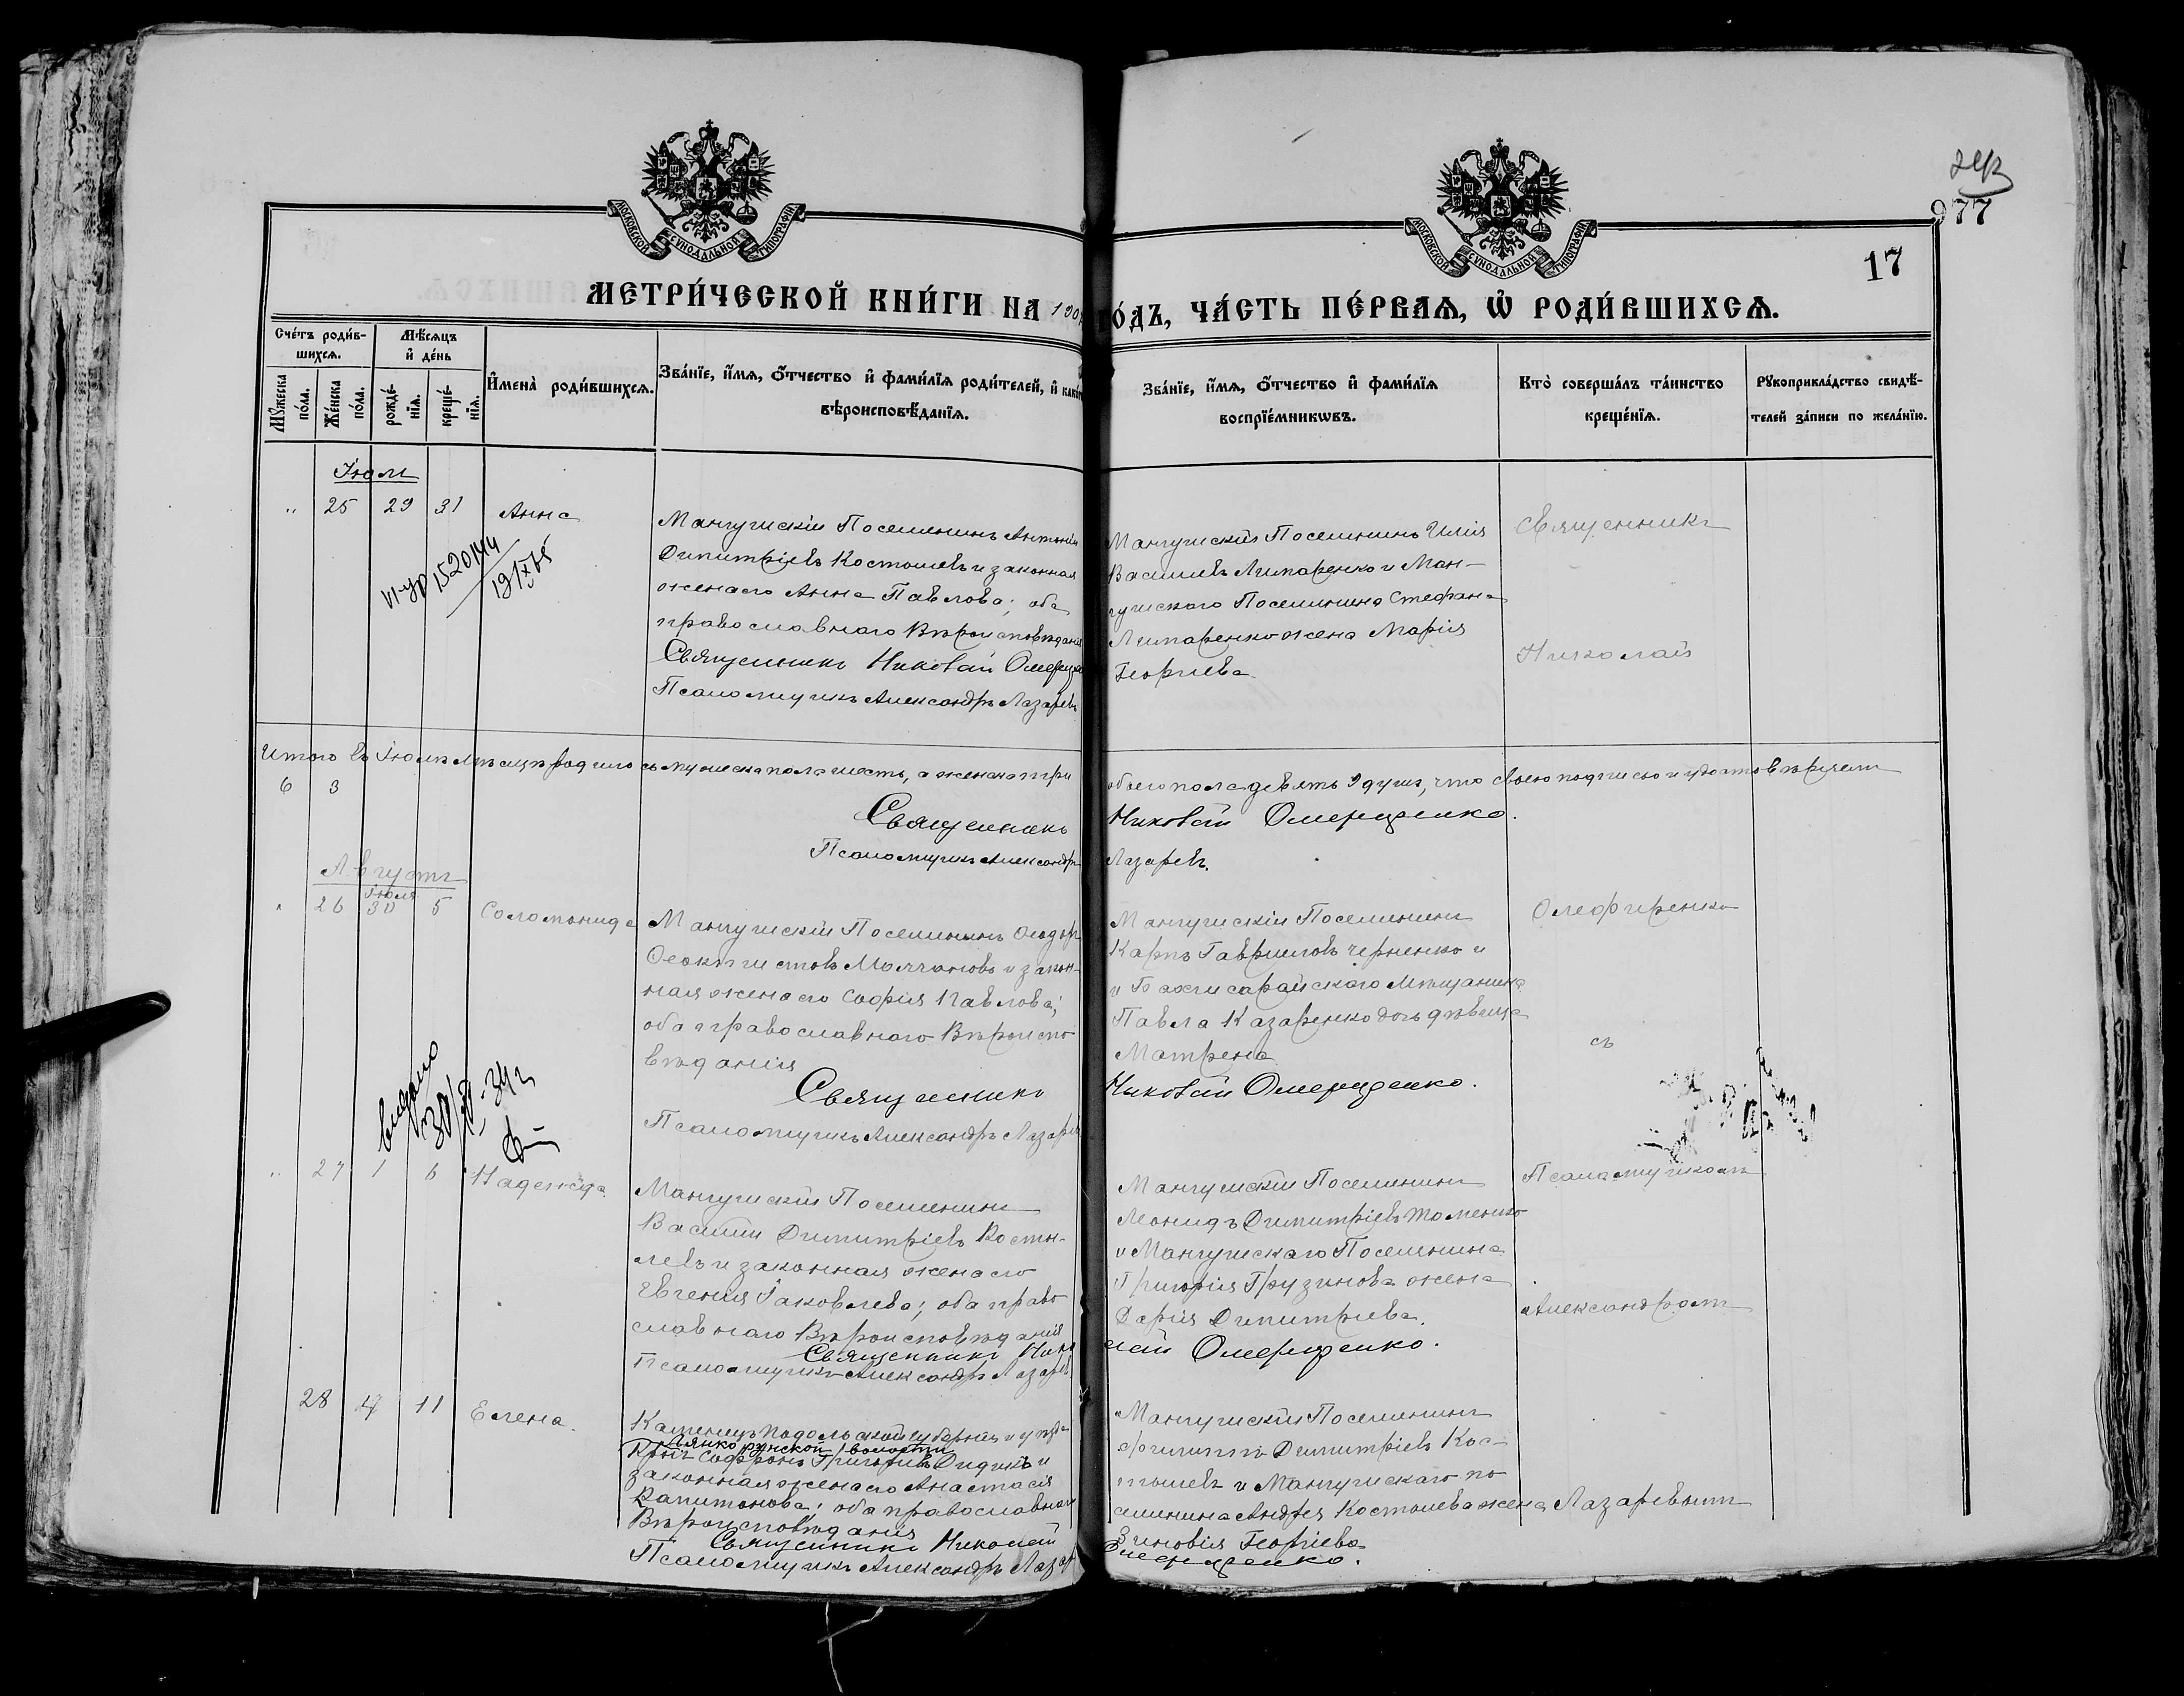 977
17
МОСКОВСКОЙ СУНОДАЛЬНОЙ ТИПОГРАФІИ
МОСКОВСКОЙ СУНОДАЛЬНОЙ ТИПОГРАФІИ
МЕТРИ́ЧЕСКОЙ КНИ́ГИ НА 190
О́ДЪ, ЧА́СТЬ ПЕ́РВАѦ, Ѡ҆ РОДИ́ВШИХСѦ.
Сче́тъ роди́в-
шихсѧ.
Мѣ́сѧцъ
и҆ де́нь
Мꙋ́жеска
по́ла.
Же́нска
по́ла.
рожде́-
нїѧ.
креще́-
нїѧ.
И҆мена̀ роди́вшихсѧ.
Зва́нїе, и҆́мѧ, ѻ҆́тчество и҆ фами́лїѧ роди́телей, и҆
вѣроисповѣ́данїѧ.
Зва́нїе, и҆́мѧ, ѻ҆́тчество и҆ фами́лїѧ
воспрїе́мникѡвъ.
Кто̀ соверша́лъ та́инство
креще́нїѧ.
Рꙋкоприкла́дство свидѣ́-
телей за́писи по жела́нїю.
Іюль
" 25 29 31 Анна
Мангушскій Поселянинъ Антоній
Димитріевъ Костылевъ и законная
жена его Анна Павлова; оба
православнаго Вѣроисповѣданія
Священникъ Николай
Псаломщикъ Александръ Лазаревъ
Мангушскій Поселянинъ Илія
Васильевъ Лимаренко и Ман-
гушскаго Поселянина Стефана
Лимаренко жена Марія
Георгіева
Священникъ
Николай
Итого въ Іюлѣ мѣсяцѣ родилось мужеска пола шесть, а женска три
обоего пола девять 9 душъ, что своею подписью и удостовѣряемъ
6 3
Священникъ
Николай
Псаломщикъ Александръ
Лазаревъ.
Августъ
Іюля
" 26 30 5 Соломонида
Мангушскій Поселянинъ Ѳеодоръ
Ѳеоктистовъ Молчановъ и закон-
ная жена его Софія Павлова;
оба православнаго Вѣроиспо
вѣданія
Священникъ
Псаломщикъ Александръ Лазаревъ
Мангушскій Поселянинъ
Карпъ Гавриловъ Черненко и
и Бахчисарайскаго Мѣщанина
Павла Казаренко дочь дѣвица
Матрена
Николай
Олефиренко
съ
" 27 1 6 Надежда.
Мангушскій Поселянинъ
Василій Димитріевъ Косты-
левъ и законная жена его
Евгенія Іаковлева; оба право
славнаго Вѣроисповѣданія
Священникъ Нико
Псаломщикъ Александръ Лазаревъ
Мангушскій Поселянинъ
Леонидъ Димитріевъ Томенко
и Мангушскаго Поселянина
Григорія Грузинова жена
Дарія Димитріева.
лай
Псаломщикомъ
Александромъ
28 4 11 Елена.
Каменецъ Подольской губерніи и уѣзда
волости
Софронъ Григорьевъ и
законная жена его Анастасія
Капитонова; оба православнаго
Вѣроисповѣданія
Священникъ Николай
Псаломщикъ Александръ Лазар
Мангушскій Поселянинъ
Филиппъ Димитріевъ Кос-
тылевъ и Мангушскаго по
селянина Андрея Костылева жена
Зиновія Георгіева
Лазаревымъ